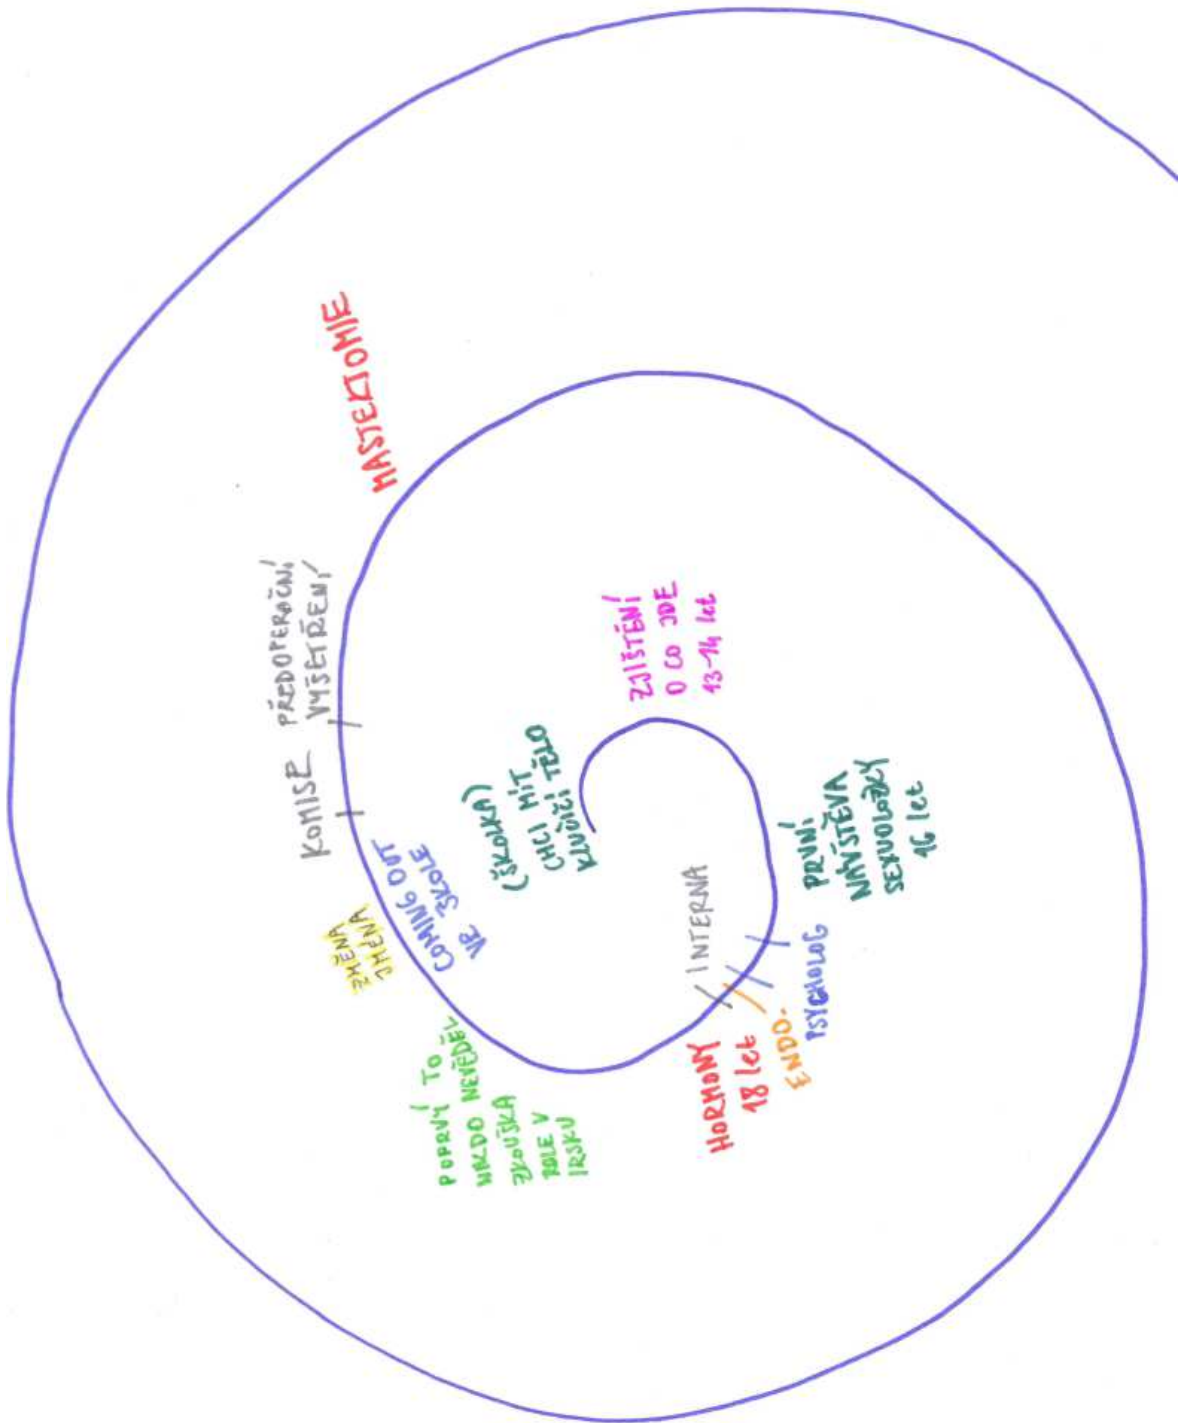 (ŠKOLKA)
CHCI MÍT
KLUČIČÍ TĚLO
ZJIŠTĚNÍ
O CO JDE
13-14 let
PRVNÍ
NÁVŠTĚVA
SEXUOLOŽKY
16 let
PSYCHOLOG
ENDO.
INTERNA
HORMONY
18 let
POPRVÝ TO
NIKDO NEVĚDĚL
ZKOUŠKA
ROLE V
IRSKU
COMING OUT
VE ŠKOLE
ZMĚNA
JMÉNA
KOMISE
PŘEDOPERAČNÍ
VYŠETŘENÍ
MASTEKTOMIE